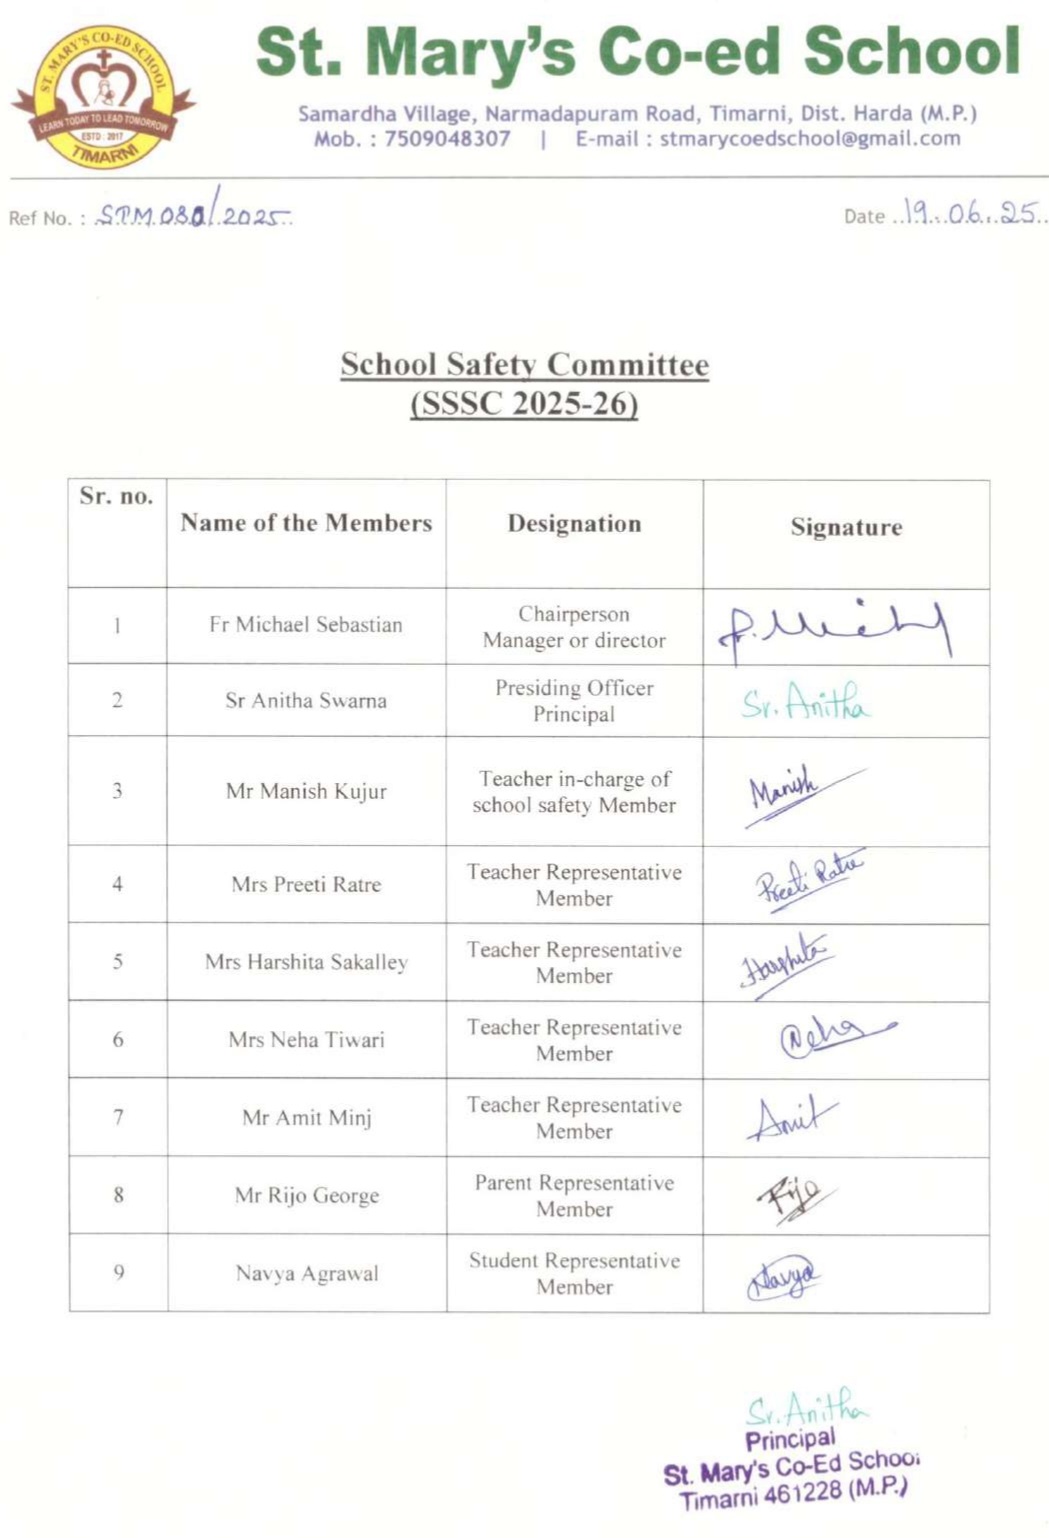 ST. MARY'S CO-ED SCHOOL
LEARN TODAY TO LEAD TOMORROW
ESTD : 2017
TIMARNI
St. Mary's Co-ed School
Samardha Village, Narmadapuram Road, Timarni, Dist. Harda (M.P.)
Mob. : 7509048307 | E-mail : stmarycoedschool@gmail.com
Ref No. : STM.080/2025 Date 19.06.25
School Safety Committee
(SSSC 2025-26)
Sr. no. Name of the Members Designation Signature
1 Fr Michael Sebastian Chairperson
Manager or director
2 Sr Anitha Swarna Presiding Officer
Principal Sr. Anitha
3 Mr Manish Kujur Teacher in-charge of
school safety Member Manish
4 Mrs Preeti Ratre Teacher Representative
Member Preeti Ratre
5 Mrs Harshita Sakalley Teacher Representative
Member Harshita
6 Mrs Neha Tiwari Teacher Representative
Member Neha
7 Mr Amit Minj Teacher Representative
Member Amit
8 Mr Rijo George Parent Representative
Member Rijo
9 Navya Agrawal Student Representative
Member Navya
Sr. Anitha
Principal
St. Mary's Co-Ed School
Timarni 461228 (M.P.)